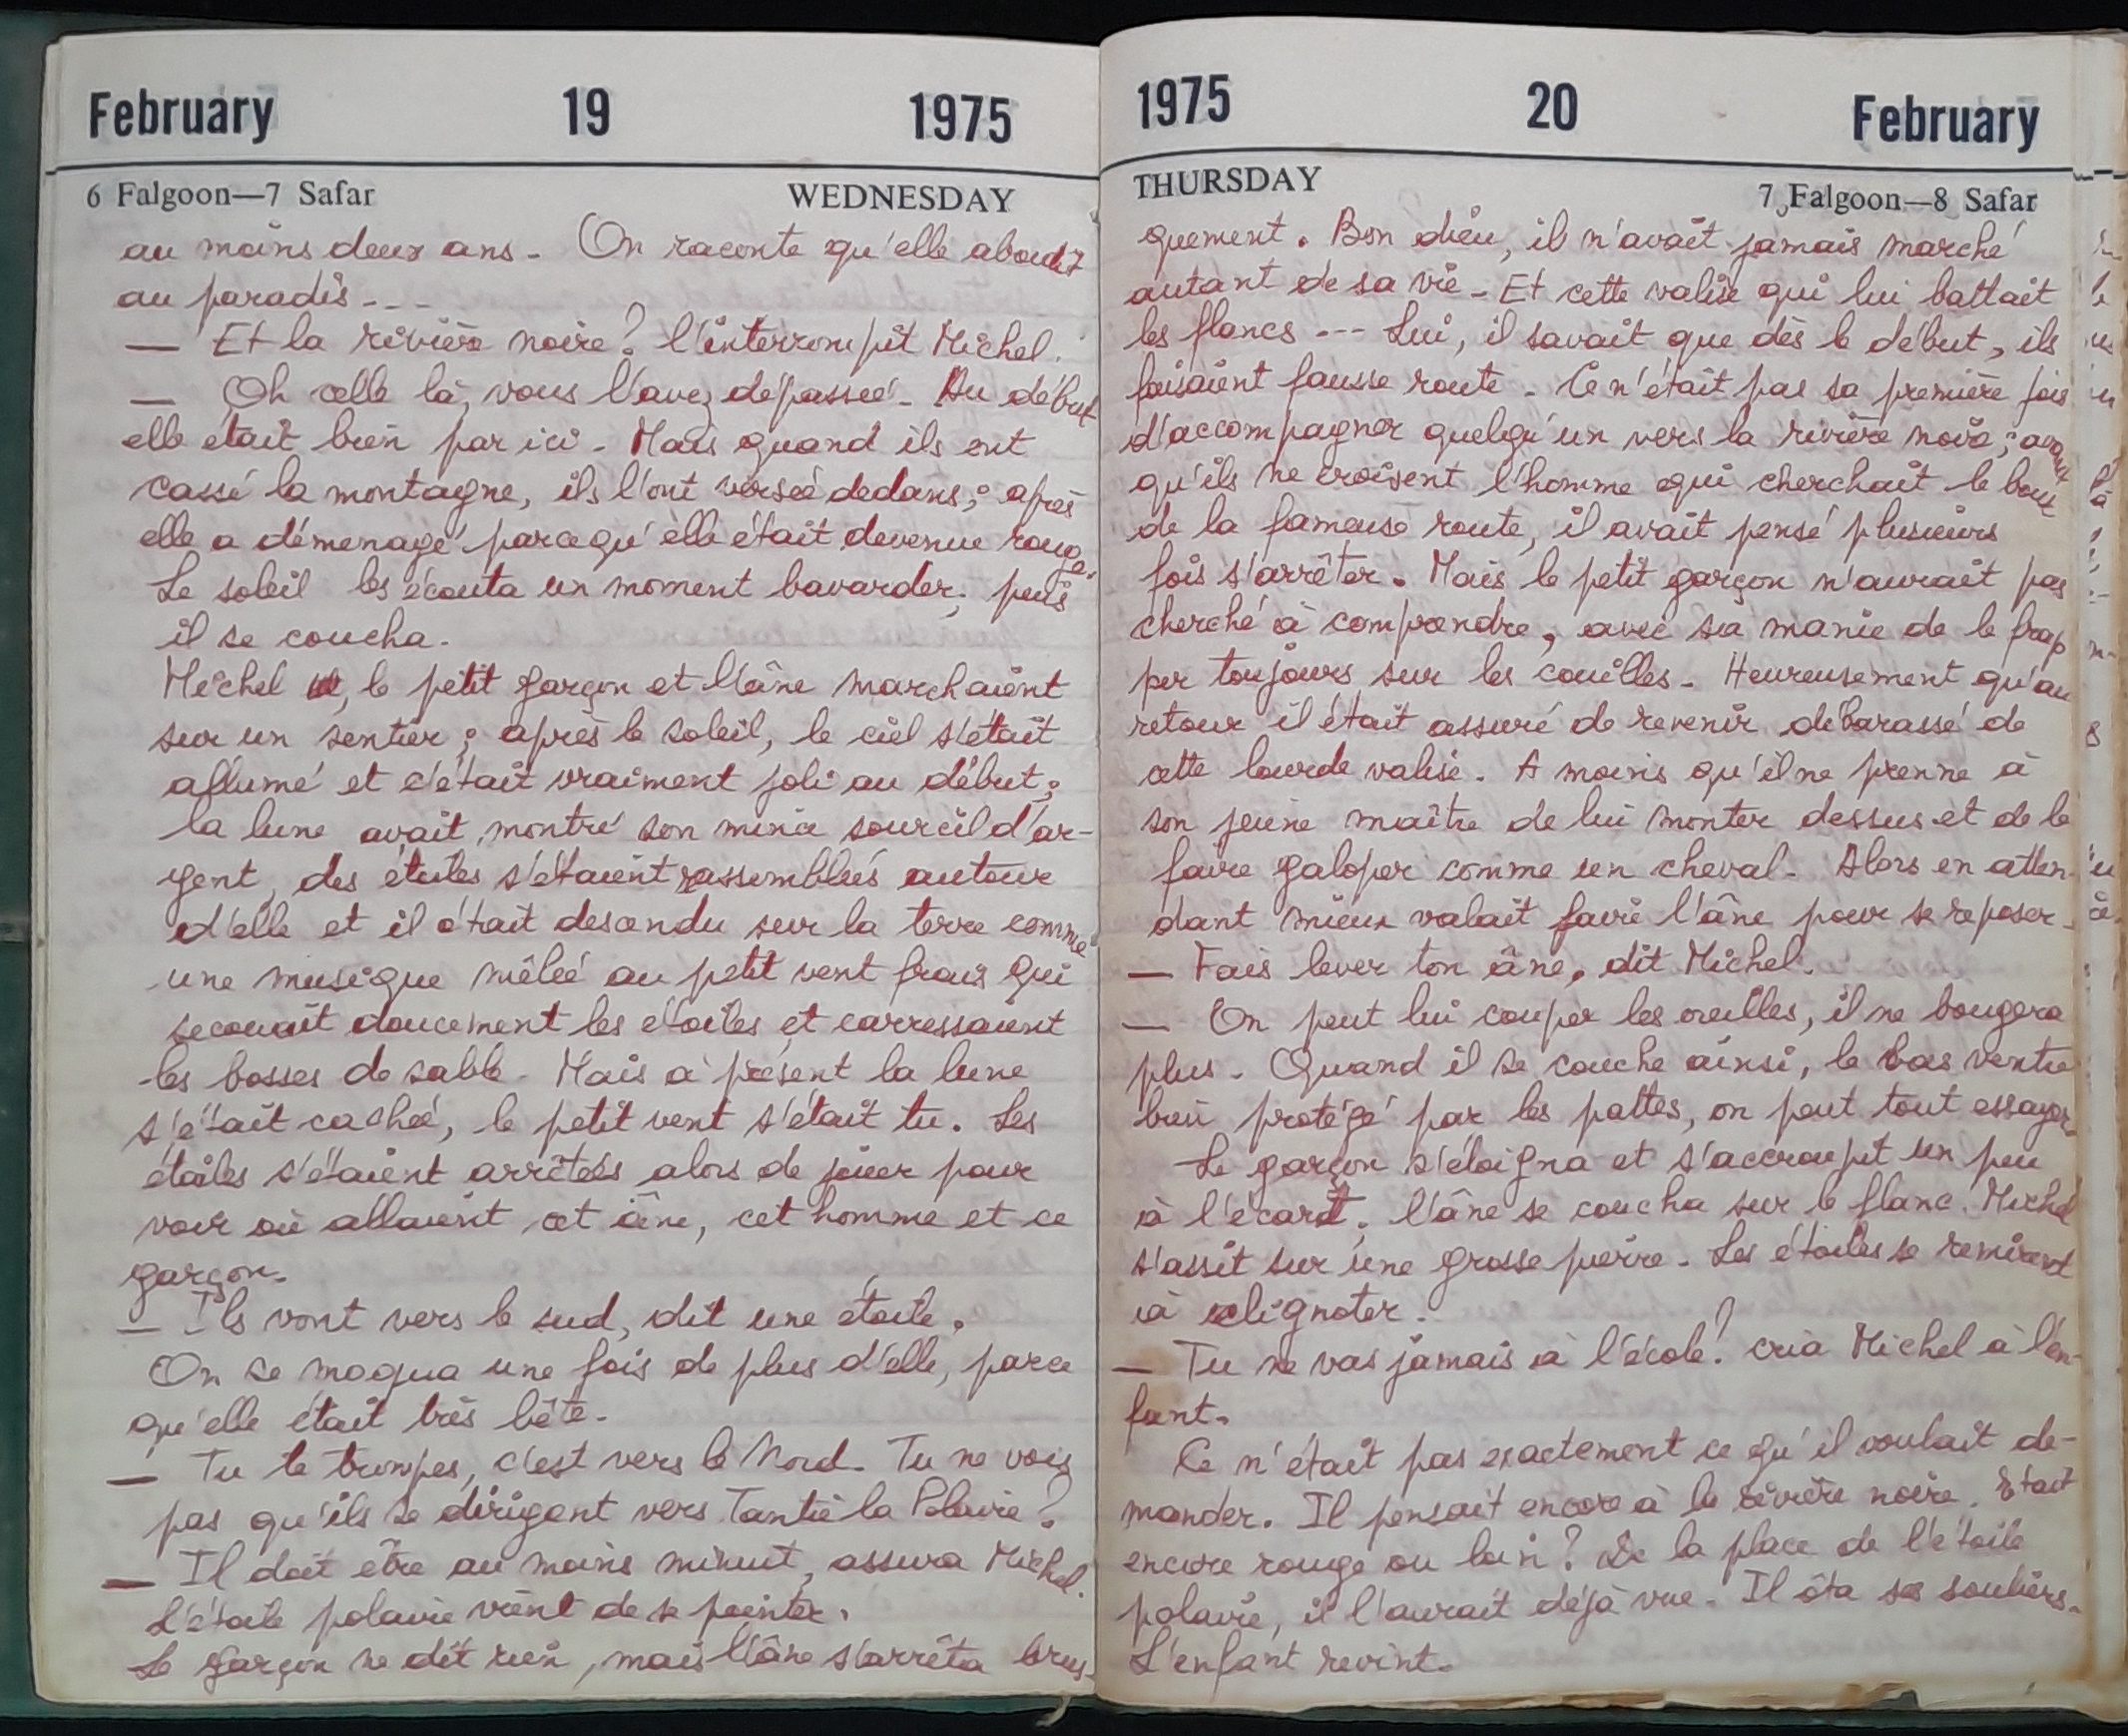 February 19 1975
6 Falgoon—7 Safar WEDNESDAY
au moins deux ans - On raconte qu'elle aboutit
au paradis - - -
— Et la rivière noire ? l'interrompit Michel.
— Oh celle là, vous l'avez dépassée - Au début
elle était bien par ici - Mais quand ils ont
cassé la montagne, ils l'ont versée dedans ; après
elle a démenagé parcequ'elle était devenue rouge.
Le soleil les écouta un moment bavarder ; puis
il se coucha.
Michel, le petit garçon et l'âne marchaient
sur un sentier ; après le soleil, le ciel s'était
allumé et c'était vraiment joli au début ;
la lune avait montré son mince sourcil d'ar-
gent, des étoiles s'étaient rassemblées autour
d'elle et il était descendu sur la terre comme
une musique mêlée au petit vent frais qui
secouait doucement les étoiles et carressaient
les bosses de sable - Mais à présent la lune
s'était cachée, le petit vent s'était tu. Les
étoiles s'étaient arrêtées alors de jouer pour
voir où allaient cet âne, cet homme et ce
garçon.
— Ils vont vers le sud, dit une étoile.
On se moqua une fois de plus d'elle, parce
qu'elle était très bête.
— Tu te trompes, c'est vers le Nord. Tu ne vois
pas qu'ils se dirigent vers Tantie la Polaire ?
— Il doit être au moins minuit, assura Michel.
L'étoile polaire vient de se pointer.
Le garçon ne dit rien, mais l'âne s'arrêta brus-
1975 20 February
THURSDAY 7 Falgoon—8 Safar
quement. Bon dieu, il n'avait jamais marché
autant de sa vie - Et cette valise qui lui battait
les flancs - - - Lui, il savait que dès le début, ils
faisaient fausse route - Ce n'était pas sa première fois
d'accompagner quelqu'un vers la rivière noire ; avant
qu'ils ne croisent l'homme qui cherchait le bout
de la fameuse route, il avait pensé plusieurs
fois s'arrêter. Mais le petit garçon n'aurait pas
cherché à comprendre, avec sa manie de le frap
per toujours sur les couilles - Heureusement qu'au
retour il était assuré de revenir débarassé de
cette lourde valise. A moins qu'il ne prenne à
son jeune maître de lui monter dessus et de le
faire galoper comme un cheval - Alors en atten-
dant mieux valait faire l'âne pour se reposer -
— Fais lever ton âne, dit Michel.
— On peut lui couper les oreilles, il ne bougera
plus - Quand il se couche ainsi, le bas ventre
bien protégé par les pattes, on peut tout essayer.
Le garçon s'éloigna et s'accroupit un peu
à l'écart, l'âne se coucha sur le flanc. Michel
s'assit sur une grosse pierre - Les étoiles se remirent
à clignoter.
— Tu ne vas jamais à l'école ? cria Michel à l'en-
fant.
Ce n'était pas exactement ce qu'il voulait de-
mander. Il pensait encore à la rivière noire. Etait
encore rouge ou loin ? De la place de l'étoile
polaire, il l'aurait déjà vue - Il ôta ses souliers.
L'enfant revint.